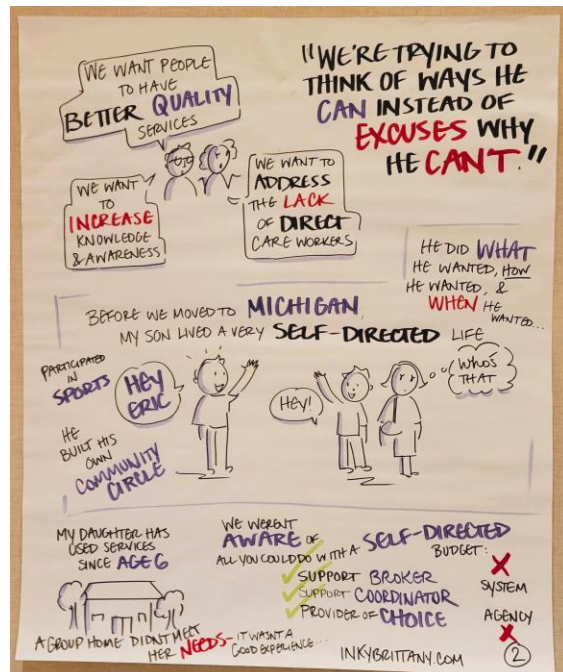 WE WANT PEOPLE
TO HAVE
BETTER QUALITY
SERVICES
"WE'RE TRYING TO
THINK OF WAYS HE
CAN INSTEAD OF
EXCUSES WHY
HE CANT."
WE WANT
TO
INCREASE
KNOWLEDGE
& AWARENESS
WE WANT TO
ADDRESS
THE LACK
OF DIRECT
CARE WORKERS
HE DID WHAT
HE WANTED, HOW
HE WANTED, &
WHEN HE
WANTED...
BEFORE WE MOVED TO MICHIGAN,
MY SON LIVED A VERY SELF-DIRECTED LIFE
PARTICIPATED
IN
SPORTS
HEY
ERIC
HEY!
WHO'S
THAT
HE
BUILT HIS
OWN
COMMUNITY
CIRCLE
MY DAUGHTER HAS
USED SERVICES
SINCE AGE 6
A GROUP HOME DIDNT MEET
HER NEEDS- IT WASN'T A
GOOD EXPERIENCE...
WE WERENT
AWARE OF
ALL YOU COULD DO WITH A SELF-DIRECTED
BUDGET:
SUPPORT BROKER
SUPPORT COORDINATOR
PROVIDER OF CHOICE
SYSTEM
AGENCY
INKYBRITTANY.COM
2